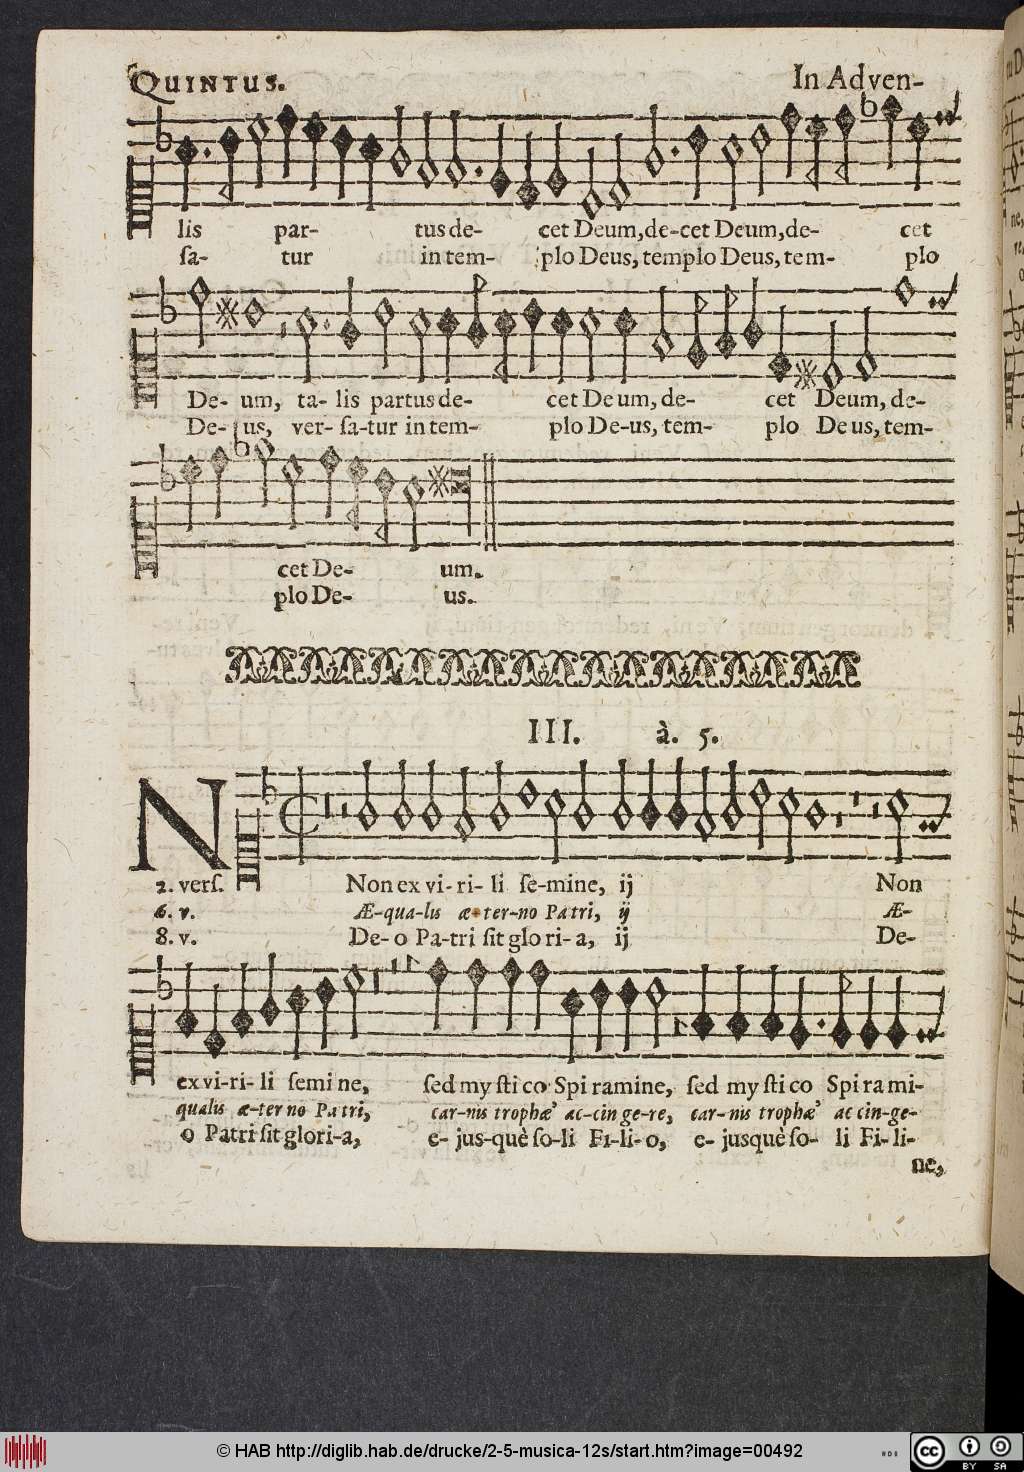 QUINTUS. In Adven-
lis par- tus de- cet Deum, de-cet Deum, de- cet
ſa- tur in tem- plo Deus, templo Deus, tem- plo
De- um, ta- lis partus de- cet De um, de- cet Deum, de-
De- us, ver- ſa-tur in tem- plo De-us, tem- plo De us, tem-
cet De- um.
plo De- us.
III. à. 5.
N
2. verſ. Non ex vi- ri- li ſe-mine, ij Non
6. v. Æ-qua-lis æ-ter-no Patri, ij Æ-
8. v. De- o Pa-tri ſit glo ri- a, ij De-
ex vi- ri- li ſemi ne, ſed my ſti co Spi ramine, ſed my ſti co Spi ra mi-
qualis æ-ter no Pa tri, car-nis trophæ' ac-cin ge-re, car-nis trophæ' ac cin-ge-
o Patri ſit glori-a, e- jus-què ſo-li Fi-li-o, e- jusquè ſo- li Fi- li-
ne,
© HAB http://diglib.hab.de/drucke/2-5-musica-12s/start.htm?image=00492
cc BY SA